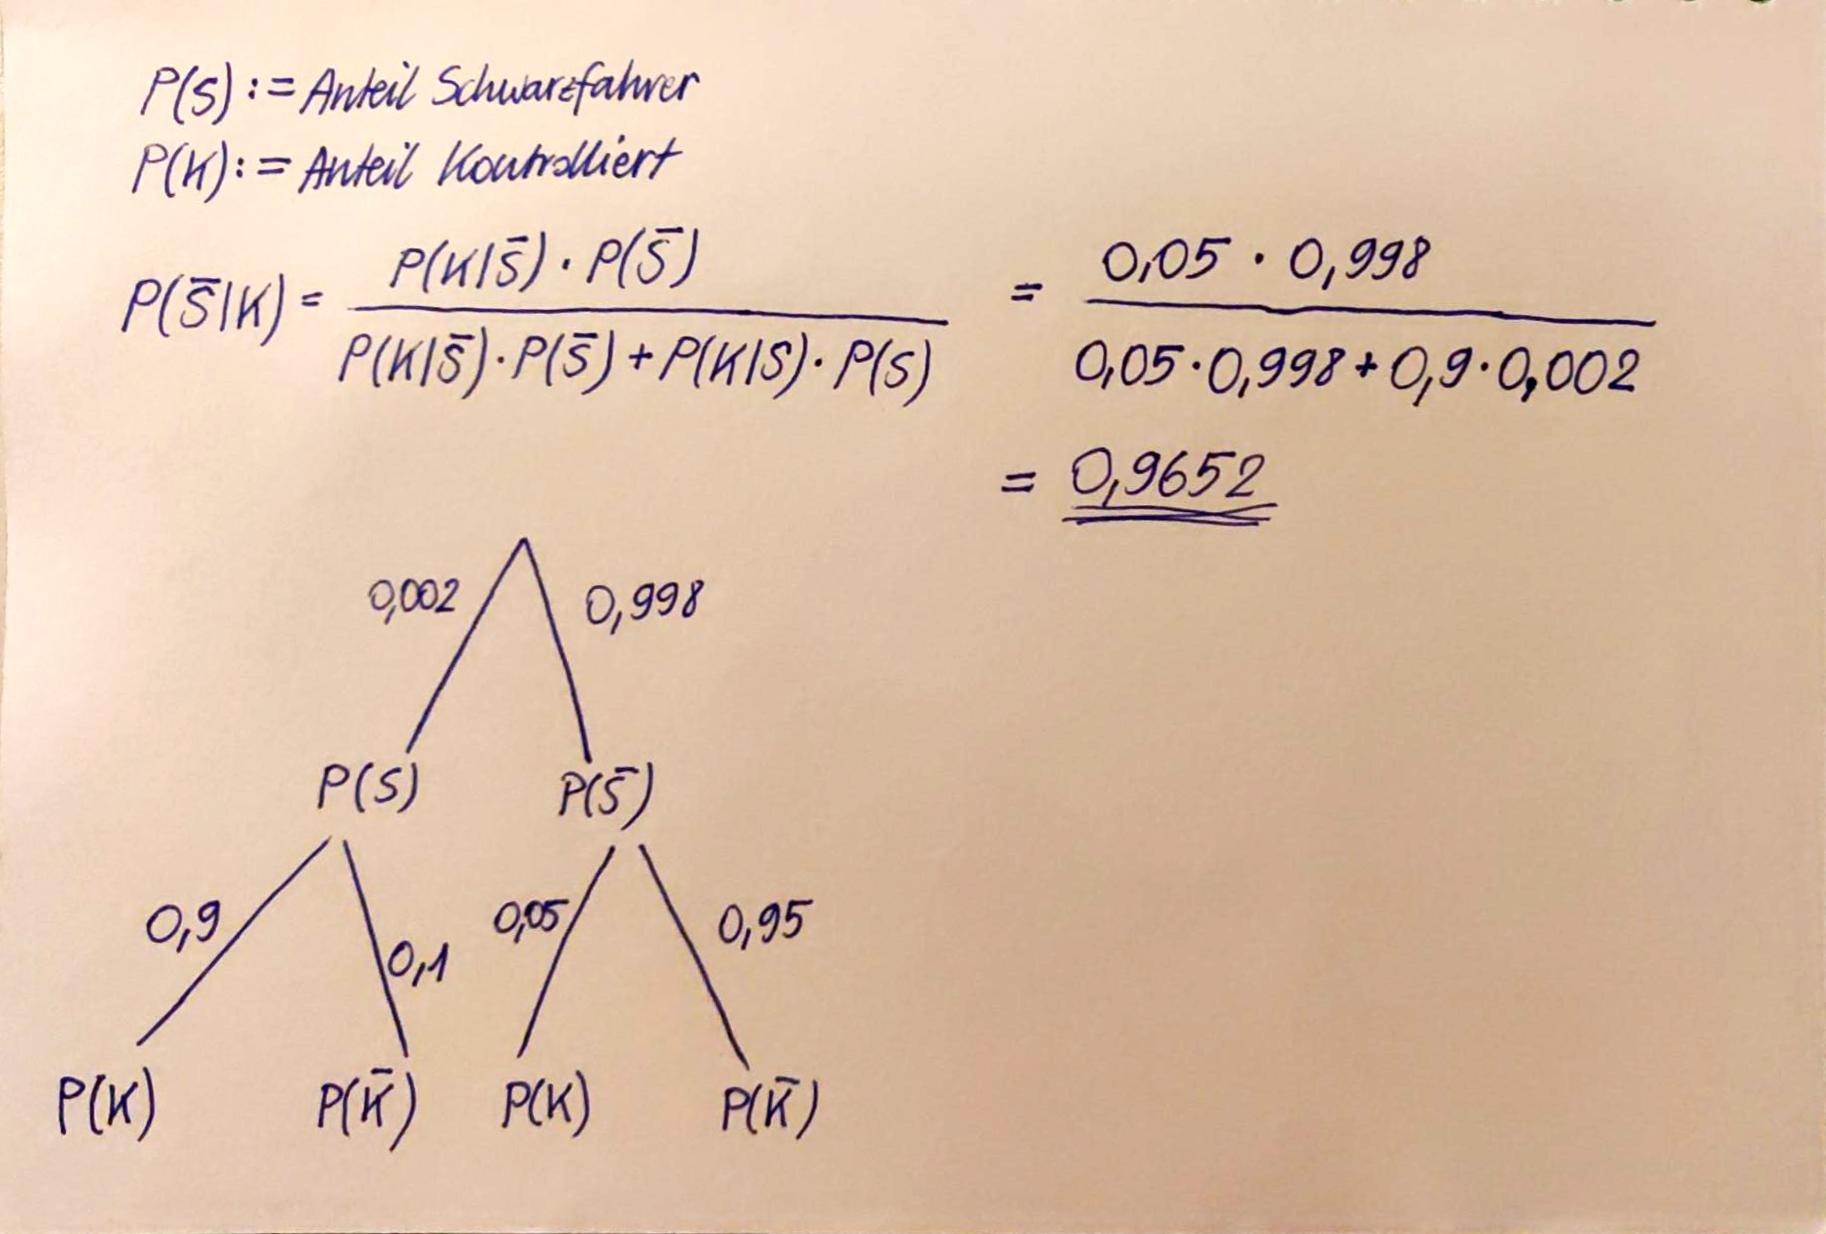 P(S) := Anteil Schwarzfahrer
P(K) := Anteil Kontrolliert
P(S̄|K) = P(K|S̄) · P(S̄) = 0,05 · 0,998
P(K|S̄) · P(S̄) + P(K|S) · P(S) 0,05 · 0,998 + 0,9 · 0,002
= 0,9652
0,002 0,998
P(S) P(S̄)
0,9 0,1 0,05 0,95
P(K) P(K̄) P(K) P(K̄)